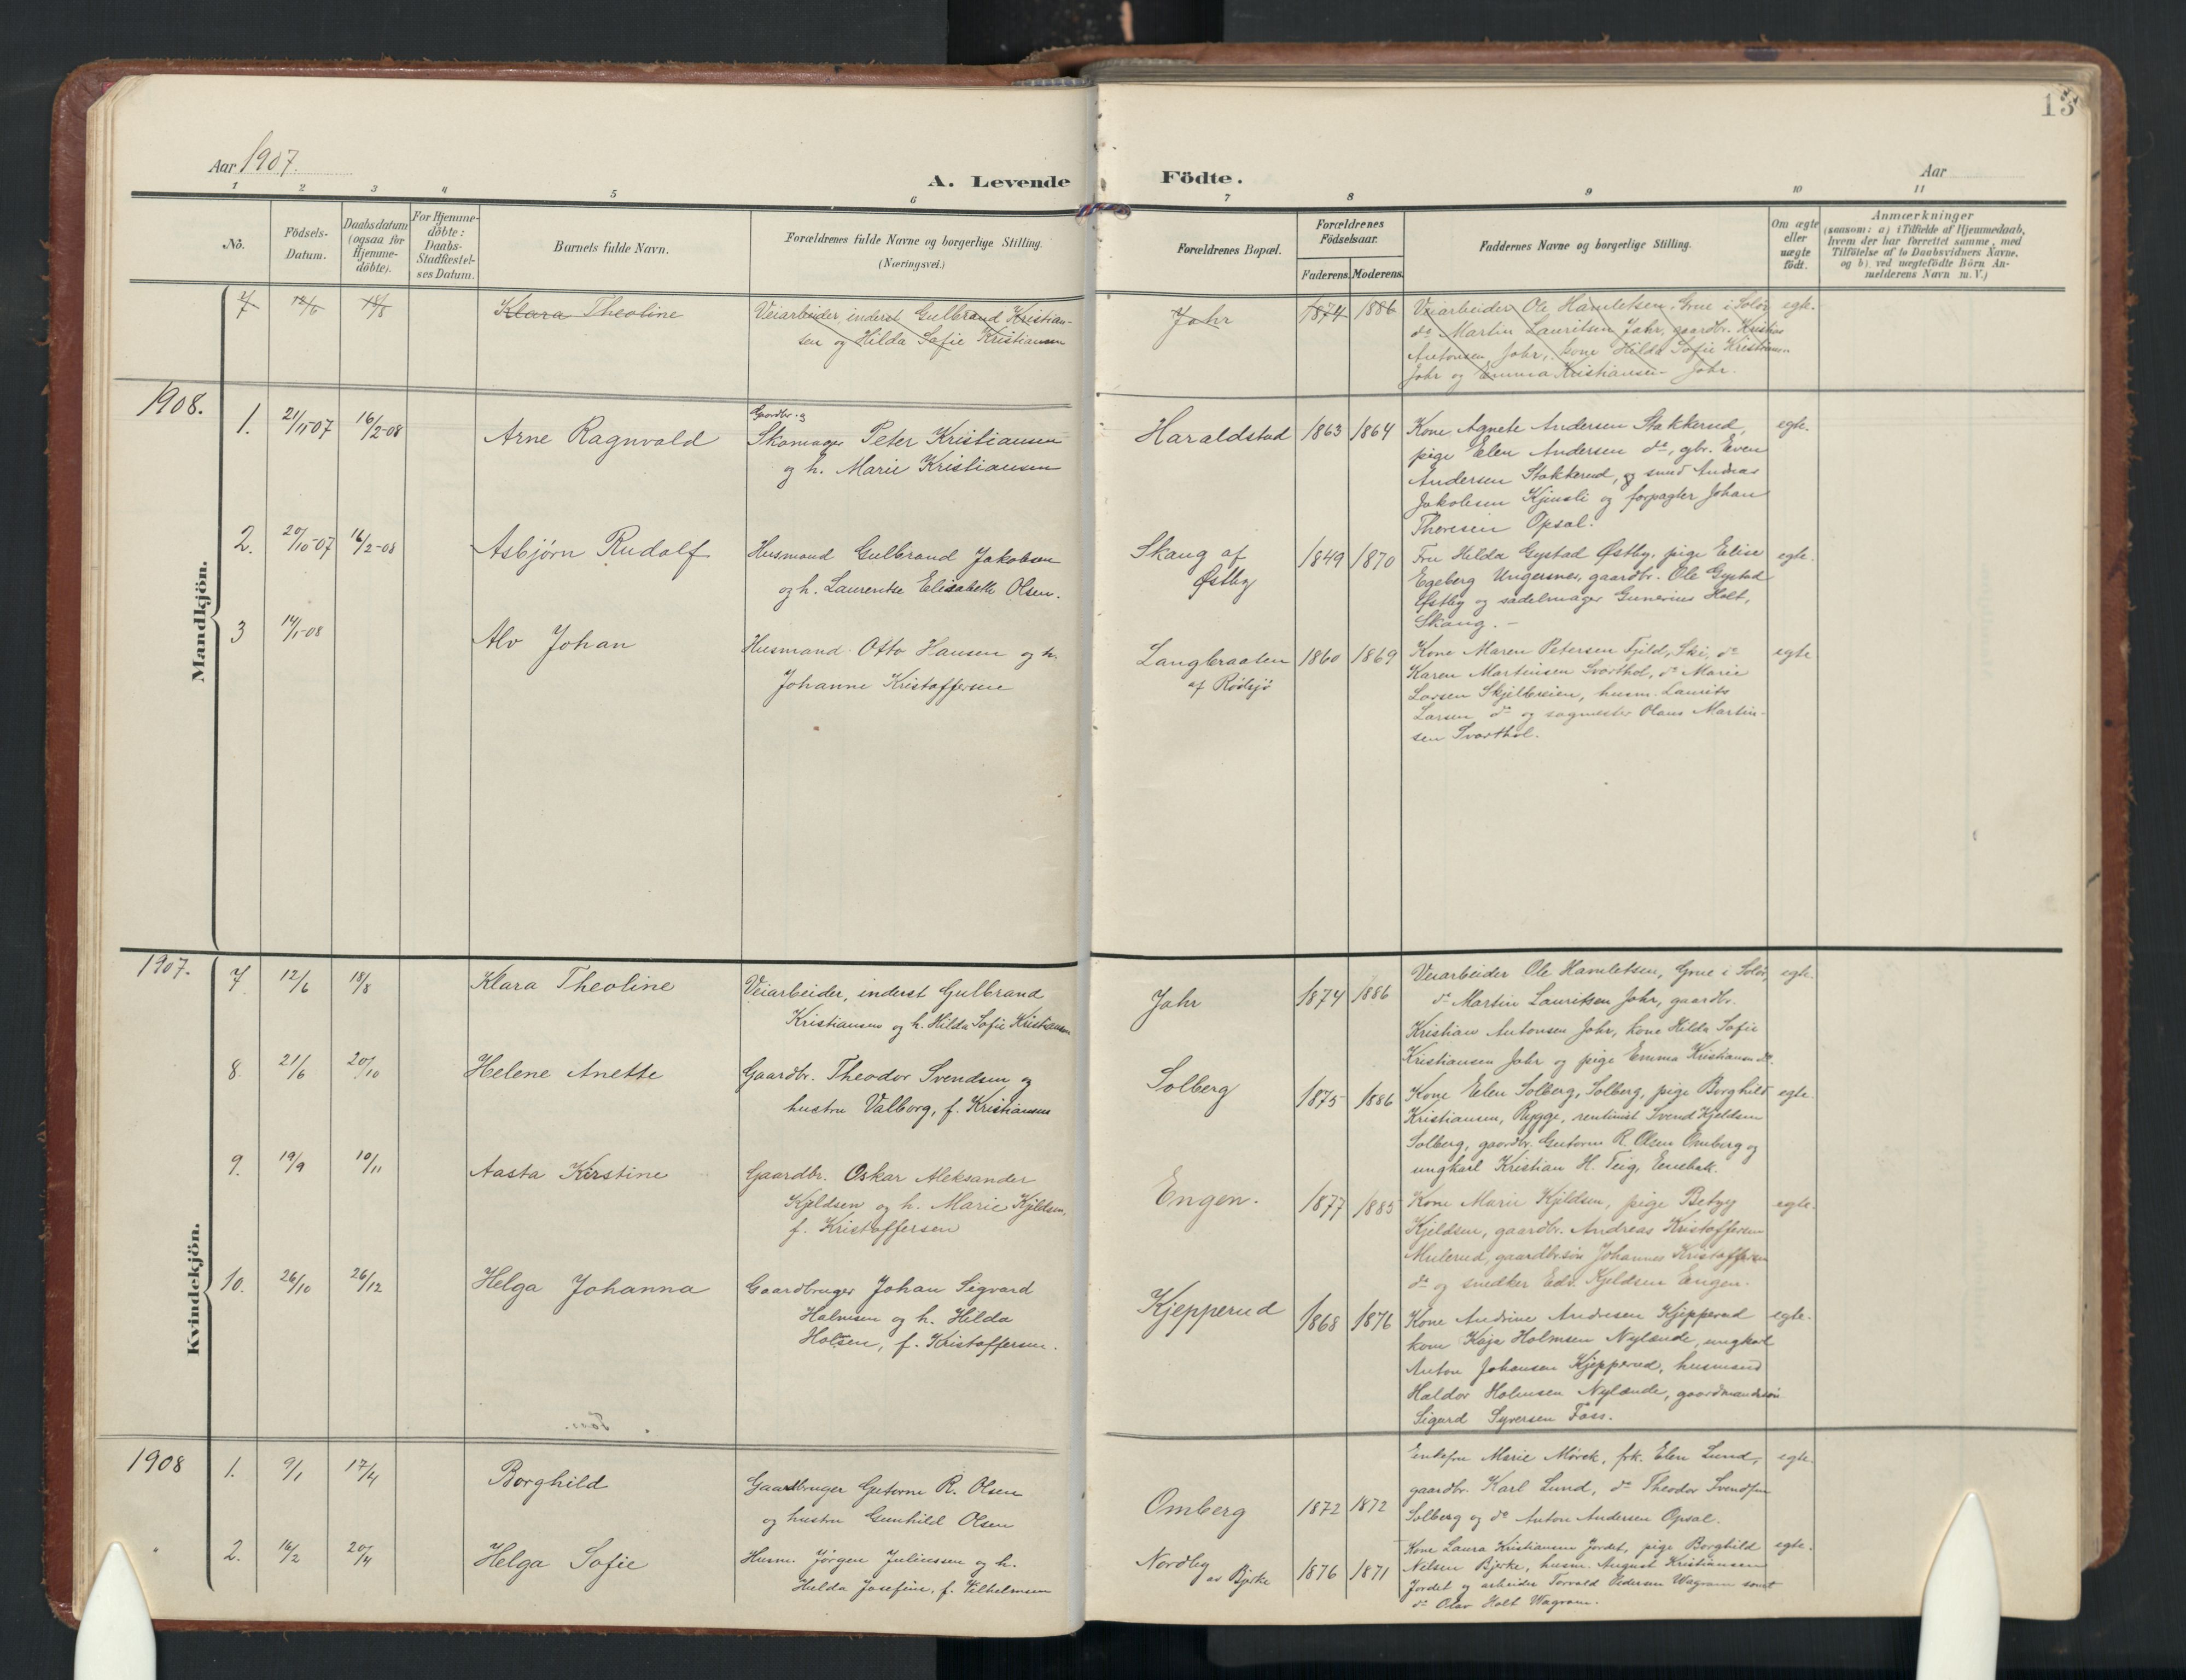 13
Aar 1907.
A. Levende Födte.
Aar
1 2 3 4 5 6 7 8 9 10 11
No.
Födsels-
Datum.
Daabsdatum
(ogsaa for
Hjemme-
döbte).
For Hjemme-
döbte:
Daabs-
Stadfæstel-
ses Datum.
Barnets fulde Navn.
Forældrenes fulde Navne og borgerlige Stilling.
(Næringsvei.)
Forældrenes Bopæl.
Forældrenes
Födselsaar.
Faderens. Moderens.
Faddernes Navne og borgerlige Stilling.
Om ægte
eller
uægte
födt.
Anmærkninger
(saasom: a) i Tilfælde af Hjemmedaab,
hvem der har forrettet samme, med
Tilföielse af to Daabsvidners Navne,
og b) ved uægtefödte Börn An-
melderens Navn m. V.)
Mandkjön.
7 12/6 18/8 Klara Theoline
Veiarbeider, inderst Gulbrand Kristian-
sen og Hilda Sofie Kristiansen
Jahr 1874 1886
Veiarbeider Ole Hamletsen, Grue i Solør
do Martin Lauritsen Jahr, gaardbr. Kristian
Antonsen Jahr, kone Hilda Sofie Kristiansen
Jahr og Emma Kristiansen Jahr.
egte.
1908.
1. 21/11-07 16/2-08 Arne Ragnvald
Gaardbr. og
Skomager Peter Kristiansen
og h. Marie Kristiansen
Haraldstad 1863 1864
Kone Agnete Andersen Stakkerud,
pige Elen Andersen do, gbr. Even
Andersen Stakkerud, og smed Andreas
Jakobsen Kjensli og forpagter Johan
Thoresen Opsal.
egte.
2. 20/10-07 16/2-08 Asbjørn Rudolf
Husmand Gulbrand Jakobsen
og h. Laurentse Elisabeth Olsen.
Skaug af
Østby
1849 1870
Fru Hilda Gystad Østby, pige Elise
Egeberg Ungersnes, gaardbr. Ole Gystad
Østby og sadelmager Gunerius Holt,
Skaug. -
egte.
3 14/1-08 Alv Johan
Husmand Otto Hansen og h.
Johanne Kristoffersen
Langbraaten
af Rödsjö
1860 1869
Kone Maren Petersen Fjild, Ski, do
Karen Martinsen Svarthol, do Marie
Larsen Skjilbreien, husm. Laurits
Larsen do og sagmester Olaus Martin-
sen Svarthol.
egte
Kvindekjön.
1907.
7 12/6 18/8 Klara Theoline
Veiarbeider, inderst Gulbrand
Kristiansen og h. Hilda Sofie Kristiansen
Jahr 1874 1886
Veiarbeider Ole Hamletsen, Grue i Solør,
do Martin Lauritsen Jahr, gaardbr.
Kristian Antonsen Jahr, kone Hilda Sofie
Kristiansen Jahr og pige Emma Kristiansen do.
egte.
8. 21/6 20/10 Helene Anette
Gaardbr. Theodor Svendsen og
hustru Valborg, f. Kristiansen
Solberg 1875 1886
Kone Elen Solberg, Solberg, pige Borghild
Kristiansen, Rygge, rentinist Svend Kjeldsen
Solberg, gaardbr. Gutorm R. Olsen Omberg og
ungkarl Kristian H. Teig, Enebak.
egte.
9. 19/9 10/11 Aasta Kirstine
Gaardbr. Oskar Aleksander
Kjeldsen og h. Marie Kjeldsen,
f. Kristoffersen
Engen. 1877 1885
Kone Marie Kjeldsen, pige Betzy
Kjeldsen, gaardbr. Andreas Kristoffersen
Mulerud, gaardbrsön Johannes Kristoffersen
do og snedker Edv. Kjeldsen Engen.
egte.
10. 26/10 26/12 Helga Johanna
Gaardbruger Johan Sigvard
Holmsen og h. Hilda
Holsen, f. Kristoffersen.
Kjepperud 1868 1876
Kone Andrine Andresen Kjepperud
kone Kaja Holmsen Nylænde, ungkarl
Anton Johansen Kjepperud, husmand
Haldor Holmsen Nylænde, gaardmandssön
Sigurd Syversen Foss.
egte.
1908
1. 9/1 17/4 Borghild
Gaardbruger Gutorm R. Olsen
og hustru Gunhild Olsen
Omberg 1872 1872
Enkefru Marie Mörck, frk. Elen Lund,
gaardbr. Karl Lund, do Theodor Svendsen
Solberg og do Anton Andersen Opsal.
egte.
" 2. 16/2 20/4 Helga Sofie
Husm. Jörgen Juliussen og h.
Hulda Josefine, f. Vilhelmsen
Nordby
av Bjerke
1876 1871
Kone Laura Kristiansen Jordet, pige Borghild
Nilsen Bjerke, husm. August Kristiansen
Jordet og arbeider Torvald Pedersen Wagram samt
do Olav Holt Wagram.
egte.